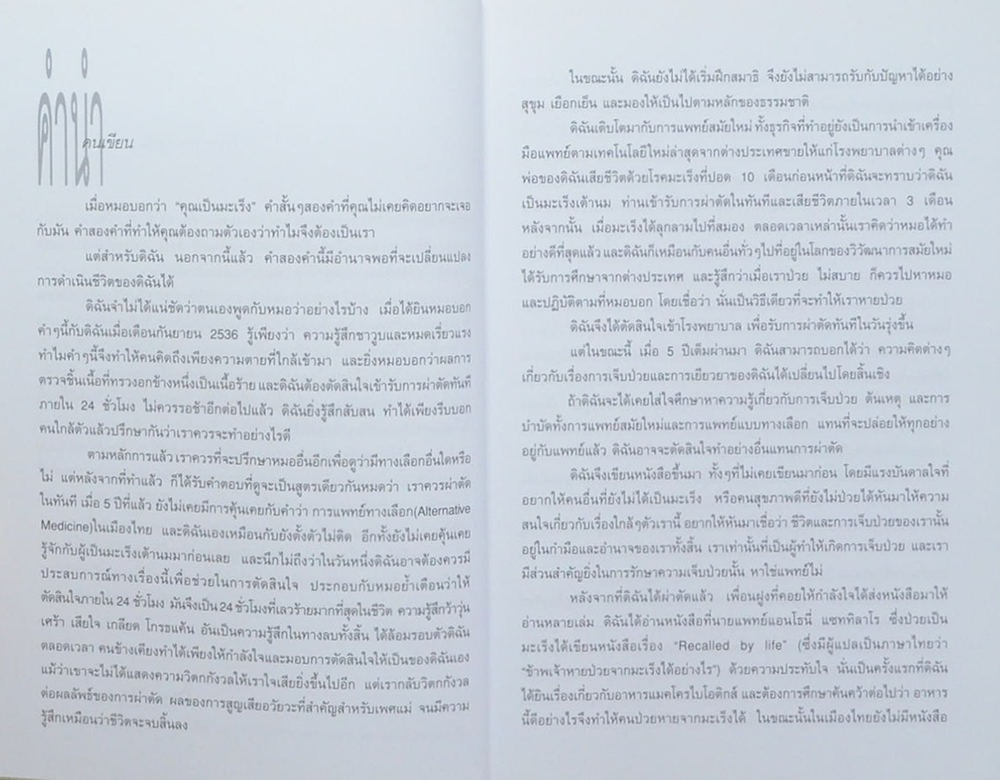 คำนำ
คนเขียน
เมื่อหมอบอกว่า “คุณเป็นมะเร็ง” คำสั้นๆสองคำที่คุณไม่เคยคิดอยากจะเจอ
กับมัน คำสองคำที่ทำให้คุณต้องถามตัวเองว่าทำไมจึงต้องเป็นเรา
แต่สำหรับดิฉัน นอกจากนี้แล้ว คำสองคำนี้มีอำนาจพอที่จะเปลี่ยนแปลง
การดำเนินชีวิตของดิฉันได้
ดิฉันจำไม่ได้แน่ชัดว่าตนเองพูดกับหมอว่าอย่างไรบ้าง เมื่อได้ยินหมอบอก
คำๆนี้กับดิฉันเมื่อเดือนกันยายน 2536 รู้เพียงว่า ความรู้สึกชาวูบและหมดเรี่ยวแรง
ทำไมคำๆนี้จึงทำให้คนคิดถึงเพียงความตายที่ใกล้เข้ามา และยิ่งหมอบอกว่าผลการ
ตรวจชิ้นเนื้อที่ทรวงอกข้างหนึ่งเป็นเนื้อร้าย และดิฉันต้องตัดสินใจเข้ารับการผ่าตัดทันที
ภายใน 24 ชั่วโมง ไม่ควรรอช้าอีกต่อไปแล้ว ดิฉันยิ่งรู้สึกสับสน ทำได้เพียงรีบบอก
คนใกล้ตัวแล้วปรึกษากันว่าเราควรจะทำอย่างไรดี
ตามหลักการแล้ว เราควรที่จะปรึกษาหมออื่นอีกเพื่อดูว่ามีทางเลือกอื่นใดหรือ
ไม่ แต่หลังจากที่ทำแล้ว ก็ได้รับคำตอบที่ดูจะเป็นสูตรเดียวกันหมดว่า เราควรผ่าตัด
ในทันที เมื่อ 5 ปีที่แล้ว ยังไม่เคยมีการคุ้นเคยกับคำว่า การแพทย์ทางเลือก(Alternative
Medicine)ในเมืองไทย และดิฉันเองเหมือนกับยังตั้งตัวไม่ติด อีกทั้งยังไม่เคยคุ้นเคย
รู้จักกับผู้เป็นมะเร็งเต้านมมาก่อนเลย และนึกไม่ถึงว่าในวันหนึ่งดิฉันอาจต้องควรมี
ประสบการณ์ทางเรื่องนี้เพื่อช่วยในการตัดสินใจ ประกอบกับหมอย้ำเตือนว่าให้
ตัดสินใจภายใน 24 ชั่วโมง มันจึงเป็น 24 ชั่วโมงที่เลวร้ายมากที่สุดในชีวิต ความรู้สึกว้าวุ่น
เศร้า เสียใจ เกลียด โกรธแค้น อันเป็นความรู้สึกในทางลบทั้งสิ้น ได้ล้อมรอบตัวดิฉัน
ตลอดเวลา คนข้างเคียงทำได้เพียงให้กำลังใจและมอบการตัดสินใจให้เป็นของดิฉันเอง
แม้ว่าเขาจะไม่ได้แสดงความวิตกกังวลให้เราใจเสียยิ่งขึ้นไปอีก แต่เรากลับวิตกกังวล
ต่อผลลัพธ์ของการผ่าตัด ผลของการสูญเสียอวัยวะที่สำคัญสำหรับเพศแม่ จนมีความ
รู้สึกเหมือนว่าชีวิตจะจบสิ้นลง
ในขณะนั้น ดิฉันยังไม่ได้เริ่มฝึกสมาธิ จึงยังไม่สามารถรับกับปัญหาได้อย่าง
สุขุม เยือกเย็น และมองให้เป็นไปตามหลักของธรรมชาติ
ดิฉันเติบโตมากับการแพทย์สมัยใหม่ ทั้งธุรกิจที่ทำอยู่ยังเป็นการนำเข้าเครื่อง
มือแพทย์ตามเทคโนโลยีใหม่ล่าสุดจากต่างประเทศขายให้แก่โรงพยาบาลต่างๆ คุณ
พ่อของดิฉันเสียชีวิตด้วยโรคมะเร็งที่ปอด 10 เดือนก่อนหน้าที่ดิฉันจะทราบว่าดิฉัน
เป็นมะเร็งเต้านม ท่านเข้ารับการผ่าตัดในทันทีและเสียชีวิตภายในเวลา 3 เดือน
หลังจากนั้น เมื่อมะเร็งได้ลุกลามไปที่สมอง ตลอดเวลาเหล่านั้นเราคิดว่าหมอได้ทำ
อย่างดีที่สุดแล้ว และดิฉันก็เหมือนกับคนอื่นทั่วๆไปที่อยู่ในโลกของวิวัฒนาการสมัยใหม่
ได้รับการศึกษาจากต่างประเทศ และรู้สึกว่าเมื่อเราป่วย ไม่สบาย ก็ควรไปหาหมอ
และปฏิบัติตามที่หมอบอก โดยเชื่อว่า นั่นเป็นวิธีเดียวที่จะทำให้เราหายป่วย
ดิฉันจึงได้ตัดสินใจเข้าโรงพยาบาล เพื่อรับการผ่าตัดทันทีในวันรุ่งขึ้น
แต่ในขณะนี้ เมื่อ 5 ปีเต็มผ่านมา ดิฉันสามารถบอกได้ว่า ความคิดต่างๆ
เกี่ยวกับเรื่องการเจ็บป่วยและการเยียวยาของดิฉันได้เปลี่ยนไปโดยสิ้นเชิง
ถ้าดิฉันจะได้เคยใส่ใจศึกษาหาความรู้เกี่ยวกับการเจ็บป่วย ต้นเหตุ และการ
บำบัดทั้งการแพทย์สมัยใหม่และการแพทย์แบบทางเลือก แทนที่จะปล่อยให้ทุกอย่าง
อยู่กับแพทย์แล้ว ดิฉันอาจจะตัดสินใจทำอย่างอื่นแทนการผ่าตัด
ดิฉันจึงเขียนหนังสือขึ้นมา ทั้งๆที่ไม่เคยเขียนมาก่อน โดยมีแรงบันดาลใจที่
อยากให้คนอื่นที่ยังไม่ได้เป็นมะเร็ง หรือคนสุขภาพดีที่ยังไม่ป่วยได้หันมาให้ความ
สนใจเกี่ยวกับเรื่องใกล้ๆตัวเรานี้ อยากให้หันมาเชื่อว่า ชีวิตและการเจ็บป่วยของเรานั้น
อยู่ในกำมือและอำนาจของเราทั้งสิ้น เราเท่านั้นที่เป็นผู้ทำให้เกิดการเจ็บป่วย และเรา
มีส่วนสำคัญยิ่งในการรักษาความเจ็บป่วยนั้น หาใช่แพทย์ไม่
หลังจากที่ดิฉันได้ผ่าตัดแล้ว เพื่อนฝูงที่คอยให้กำลังใจได้ส่งหนังสือมาให้
อ่านหลายเล่ม ดิฉันได้อ่านหนังสือที่นายแพทย์แอนโธนี่ แซททิลาโร ซึ่งป่วยเป็น
มะเร็งได้เขียนหนังสือเรื่อง “Recalled by life” (ซึ่งมีผู้แปลเป็นภาษาไทยว่า
“ข้าพเจ้าหายป่วยจากมะเร็งได้อย่างไร”) ด้วยความประทับใจ นั่นเป็นครั้งแรกที่ดิฉัน
ได้ยินเรื่องเกี่ยวกับอาหารแมคโครไบโอติกส์ และต้องการศึกษาค้นคว้าต่อไปว่า อาหาร
นี้ดีอย่างไรจึงทำให้คนป่วยหายจากมะเร็งได้ ในขณะนั้นในเมืองไทยยังไม่มีหนังสือ